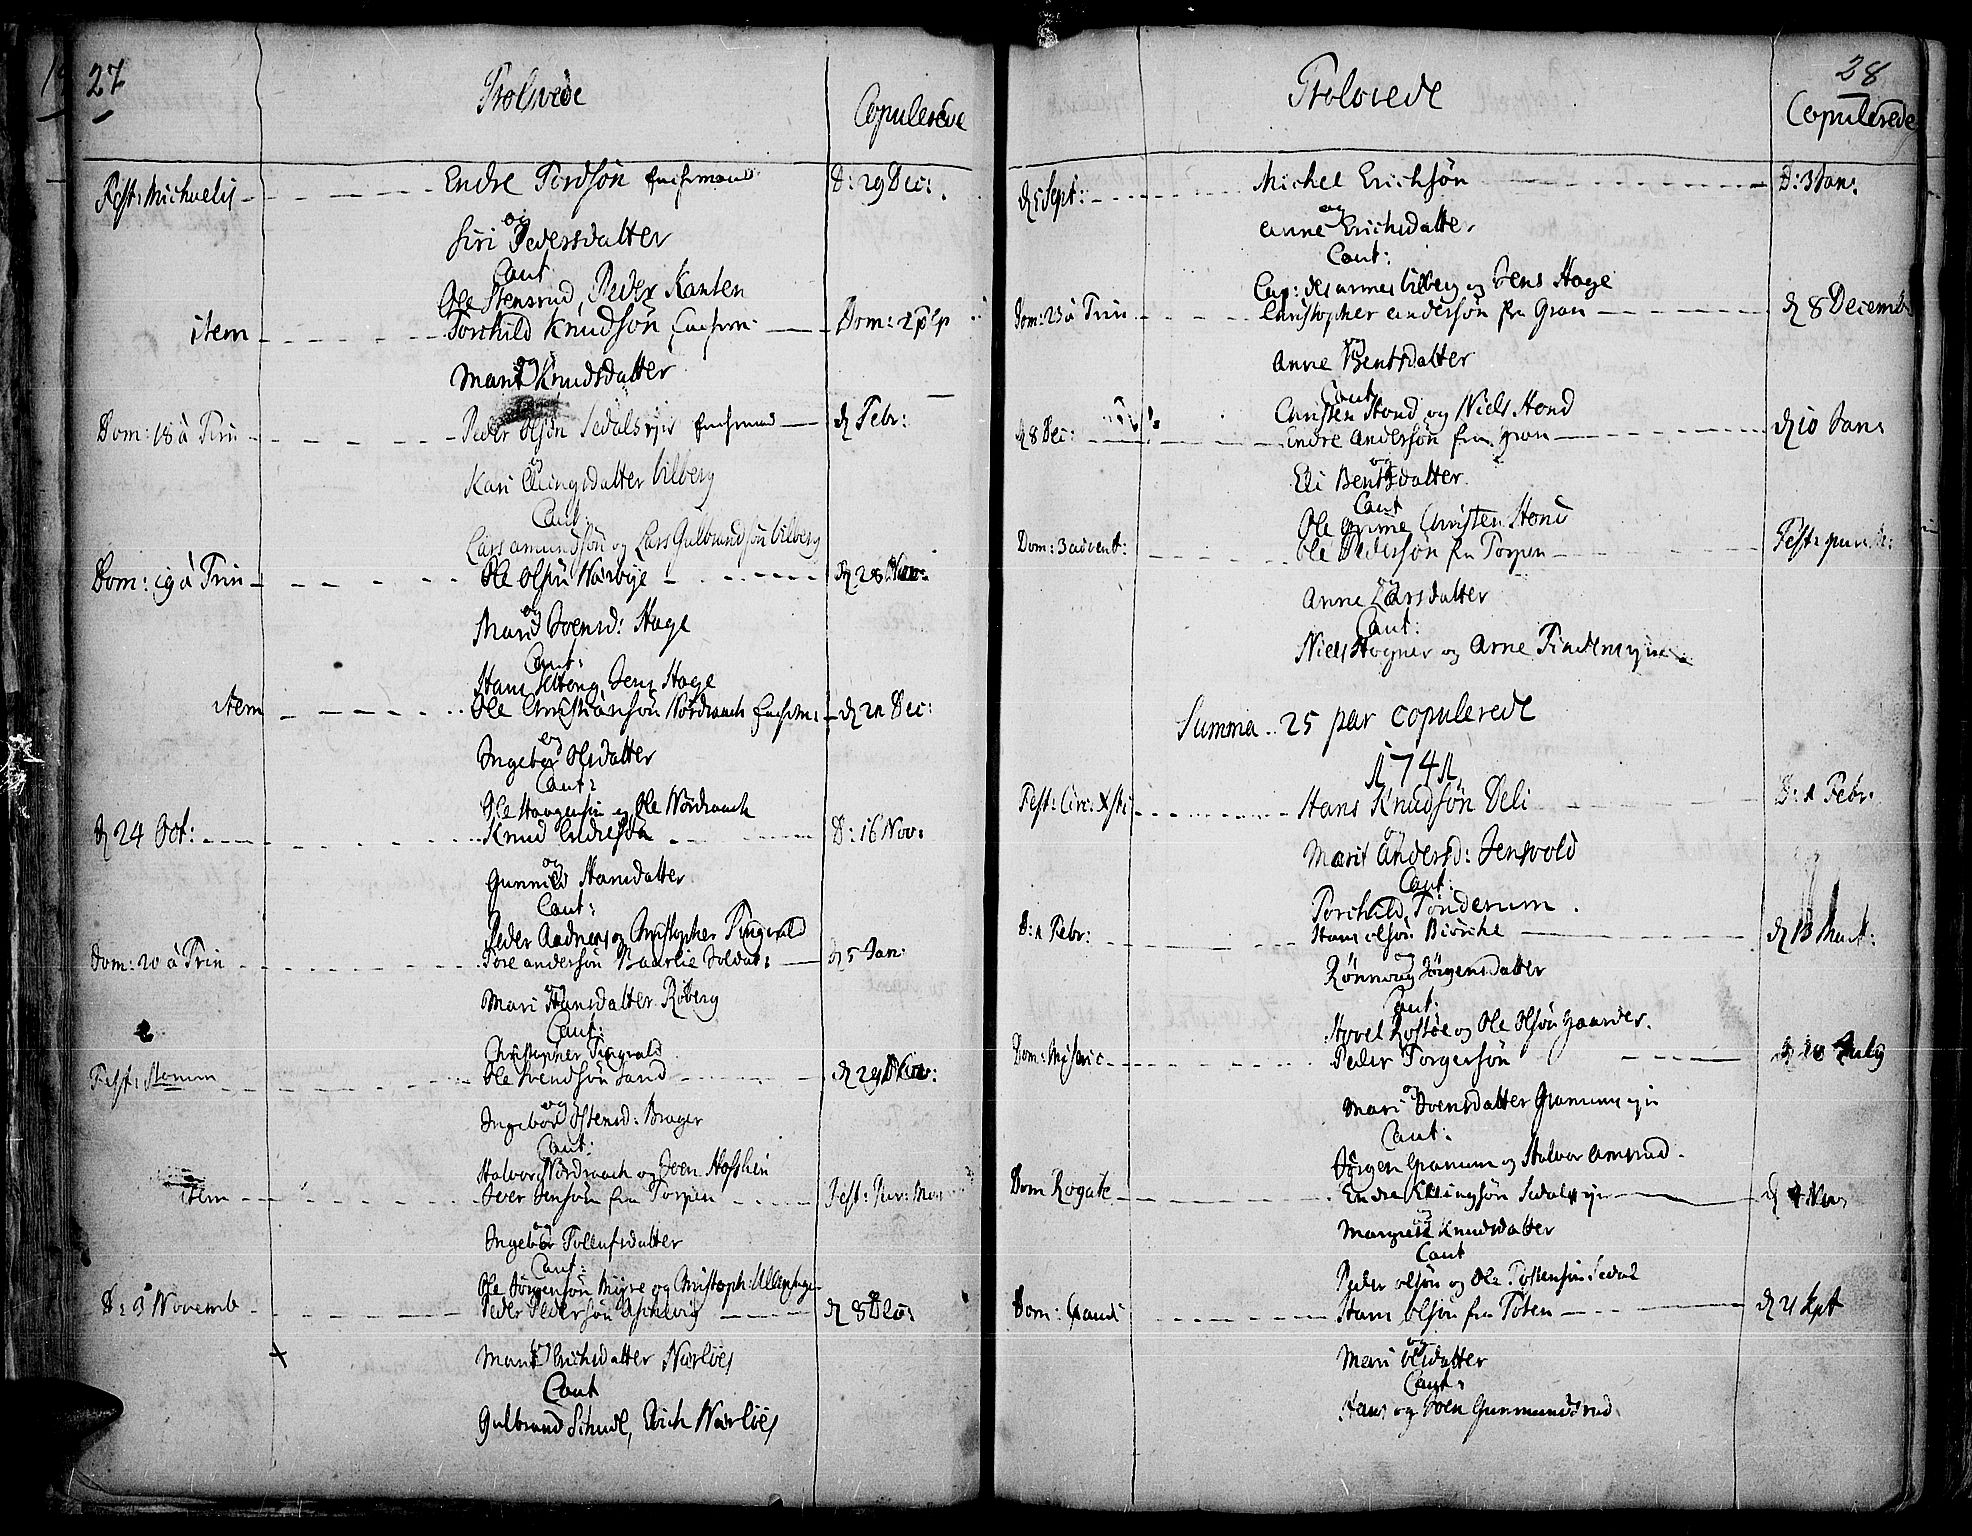 27
Trolovede
Copulerede
Fest: Michaelis Endre Tordsøn Enchemand D: 29 Dec:
og
Siri Pedersdatter
Caut
Ole Stensrud, Peder Kanten
item Torchild Knudsøn Dom: 2 p Ep
og
Marit Knudsdatter
Dom: 18 à Trin Peder Olsøn Sedalseje Enchemand d Febr:
og
Kari Ellingsdatter Vilberg
Caut:
Lars Amundsøn og Lars Gulbrandsøn Vilberg
Dom: 19 à Trin Ole Olsøn Nærbye d 28 Nov:
og
Mari Svensd: Hage
Caut:
Hans Jens Hage
item Ole Christiansøn Nordraach d 21 Dec:
og
Ingebor Olsdatter
Caut:
Ole Haagensøn og Ole Nordraach
d 24 Oct: Knud Endresøn D: 16 Nov:
og
Gunnild Hansdatter
Caut:
Peder Aadnæs og Christopher Tingvald
Dom: 20 à Trin Tore Andersøn Baarlie Soldat: d 5 Jan:
og
Mari Hansdatter Røberg
Caut:
Christopher Tingvald
Fest: Ole Svendsøn Sand d 29 Nov:
og
Ingebor Ostensd: Brager
Caut:
Halvor Nordraach og Sven
item Iver Jensøn fra Torpen Fest: Pur: Mar
og
Ingebor Tollefsdatter
Caut:
Ole Jørgensøn Myre og Christoph:
D: 8 Novemb Peder Pedersøn d 8 Dec:
og
Marit Erichsdatter Nærlöes
Caut
Gulbrand Schude, Erich Nærlöes
28
Trolovede
Copulerede
d 5 Sept: Michel Erichsøn D: 3 Jan:
og
Anne Erichsdatter
Caut:
Cap: des armes Vilberg og Jens Hage
Dom: 23 à Trin Christopher Andersøn fra Gran d 8 Decemb
og
Anne Bentsdatter
Caut
Christen Hond og Niels Hond
d 8 Dec: Endre Andersøn fra Gran d 10 Jan:
og
Eli Bentsdatter
Caut
Ole Grime Christen Hond
Dom: 3 advent: Ole Pedersøn fra Torpen Fest: pur:
og
Anne Larsdatter
Caut:
Niels Hogner og Arne
Summa 25 par copulerede
1741
Fest: Circ: Xsti Hans Knudsøn Deli D: 1 Febr:
og
Marit Andersd: Jensvold
Caut:
Torchild, Tønderum
D: 1 Febr: Hans Olsøn Biørche d 13 Mart:
og
Rønnoug Jørgensdatter
Caut:
Hovel Rostøe og Ole Olsøn Gaarder
Dom: Miseric Peder Torgersøn d 10 July
og
Mari Svensdatter
Caut:
Jørgen Granum og Halvor Amrud
Dom Rogate Endre Ellingsøn d 4 Nov
og
Margrete Knudsdatter
Caut
Peder Olsøn og Ole Tostensøn Sedal
Dom: Exaudi Hans Olsøn fra Toten d 21 Sept
og
Mari Olsdatter
Caut:
Hans og Sven Gunmundsrud